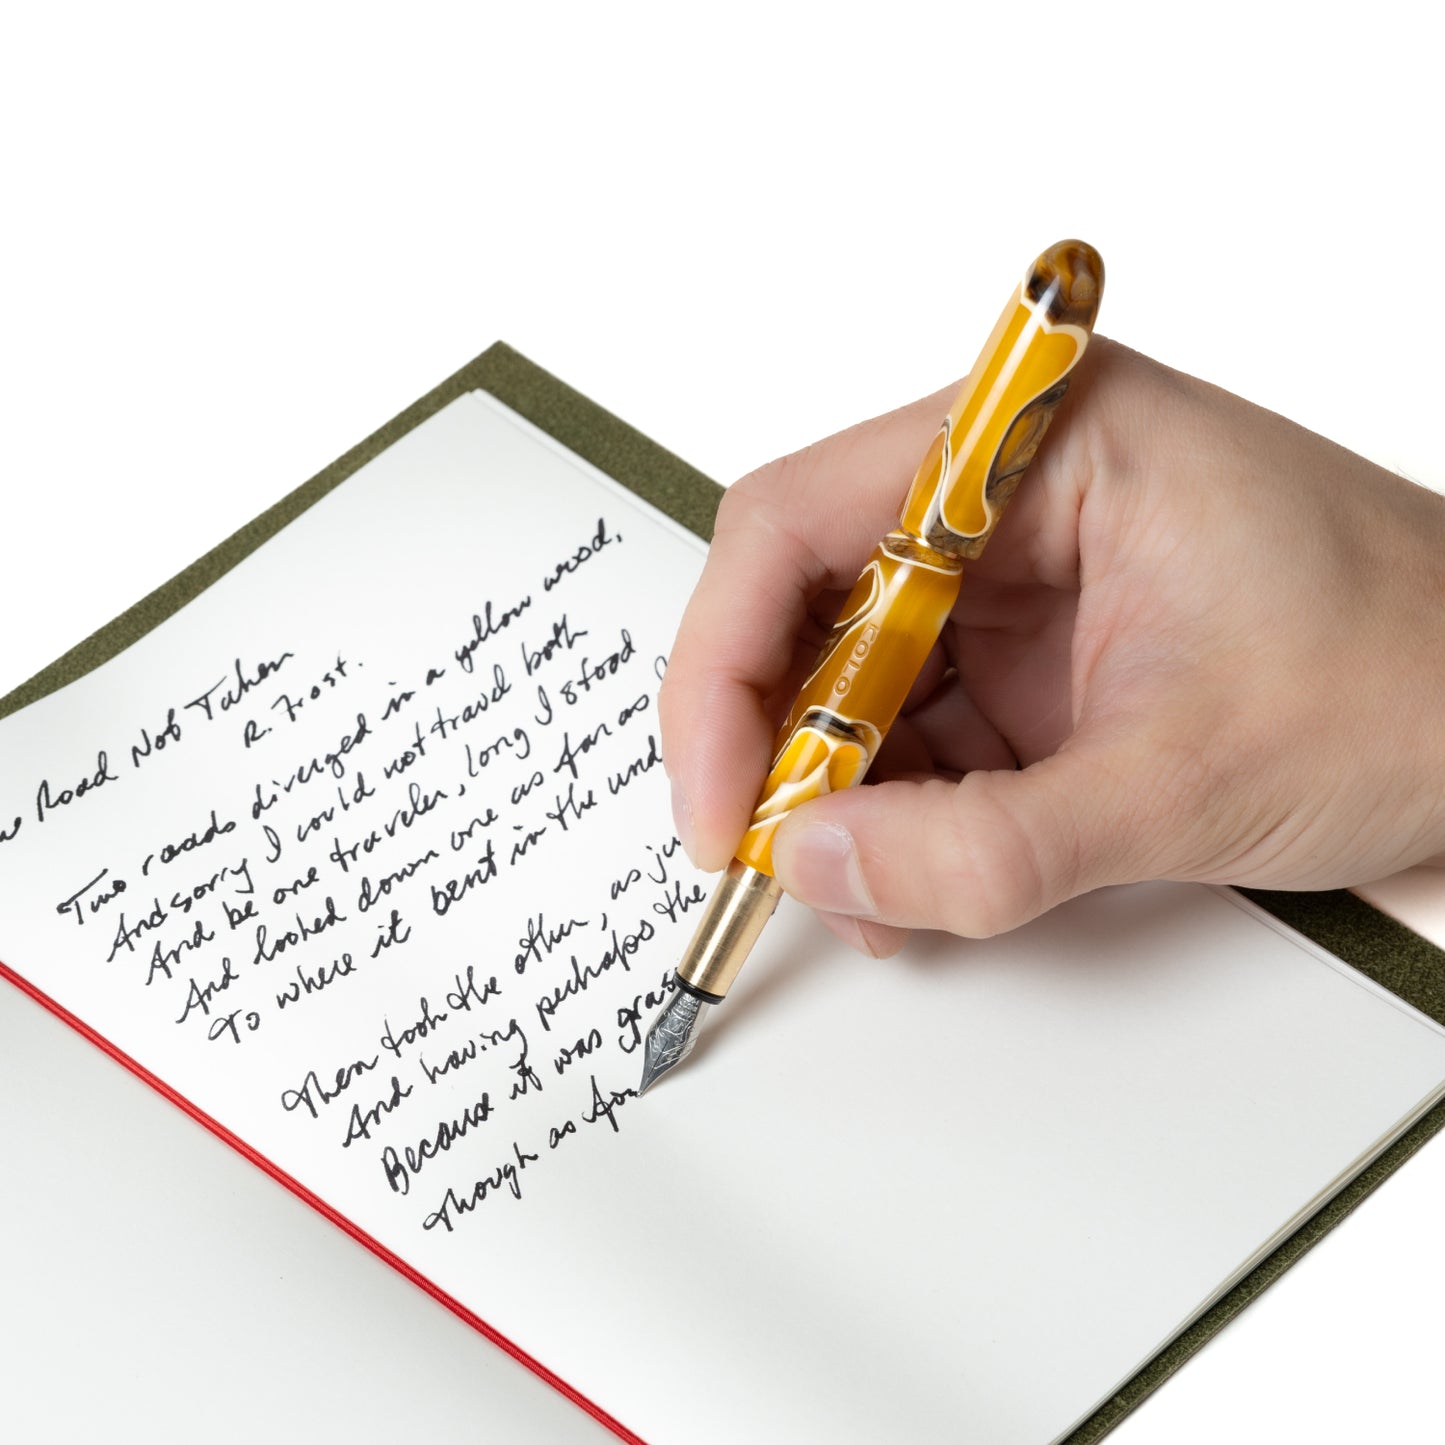 Road Not Taken
R. Frost.
Two roads diverged in a yellow wood,
And sorry I could not travel both
And be one traveler, long I stood
And looked down one as far as
To where it bent in the und
Then took the other, as ju
And having perhaps the
Because it was gras
Though as for
NOLO